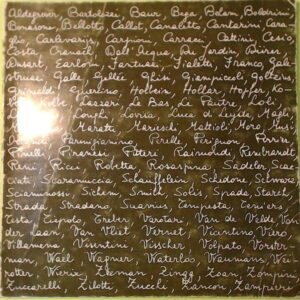 Aldegrever, Bartolozzi, Baur, Bega, Belam, Bolovrini
Bonasone, Bellotto, Callot, Canaletto, Cantarini, Cara-
glio, Carlevarijs, Carpioni, Carracci, Cattini, Cesio,
Costa, Cranach, Dall'Acqua, De Jardin, Dürer,
Dusart, Earlom, Fantuzzi, Fialetti, Franco, Gale-
struzzi, Galle, Gellée, Ghisi, Giampiccoli, Goltzius,
Grimaldi, Guerino, Holbein, Hollar, Hopfer,
Kolbe, Lazzari, Le Bas, Le Pautre, Loli
Longhi, Lovisa, Luca di Leyda,
Maratti, Marieschi, Mattioli, Moro,
Parmigianino, Perelle, Perignon,
Pinelli, Piranesi, Pitteri, Raimondi, Rembrandt
Reni, Ricci, Roletta, Rosaspina, Sadeler
Scaramuccia, Schauffelein, Schedone,
Scarmuossi, Sichem, Smith, Solis, Spada, Starck,
Strada, Stradano, Suavius, Tempesta, Teniers
Testa, Tiepolo, Treber, Varotari, Van de Velde,
der Laan, Van Vliet, Vernet, Vicentino, Vico
Villamena, Visentini, Visscher, Volpato, Vorster-
man, Wael, Wagner, Waterloo, Waumans, Wei-
rotter, Wierix, Zeeman, Zingg, Zoan, Zompini
Zuccarelli, Zilotti, Zucchi, Rancon, Zampieri